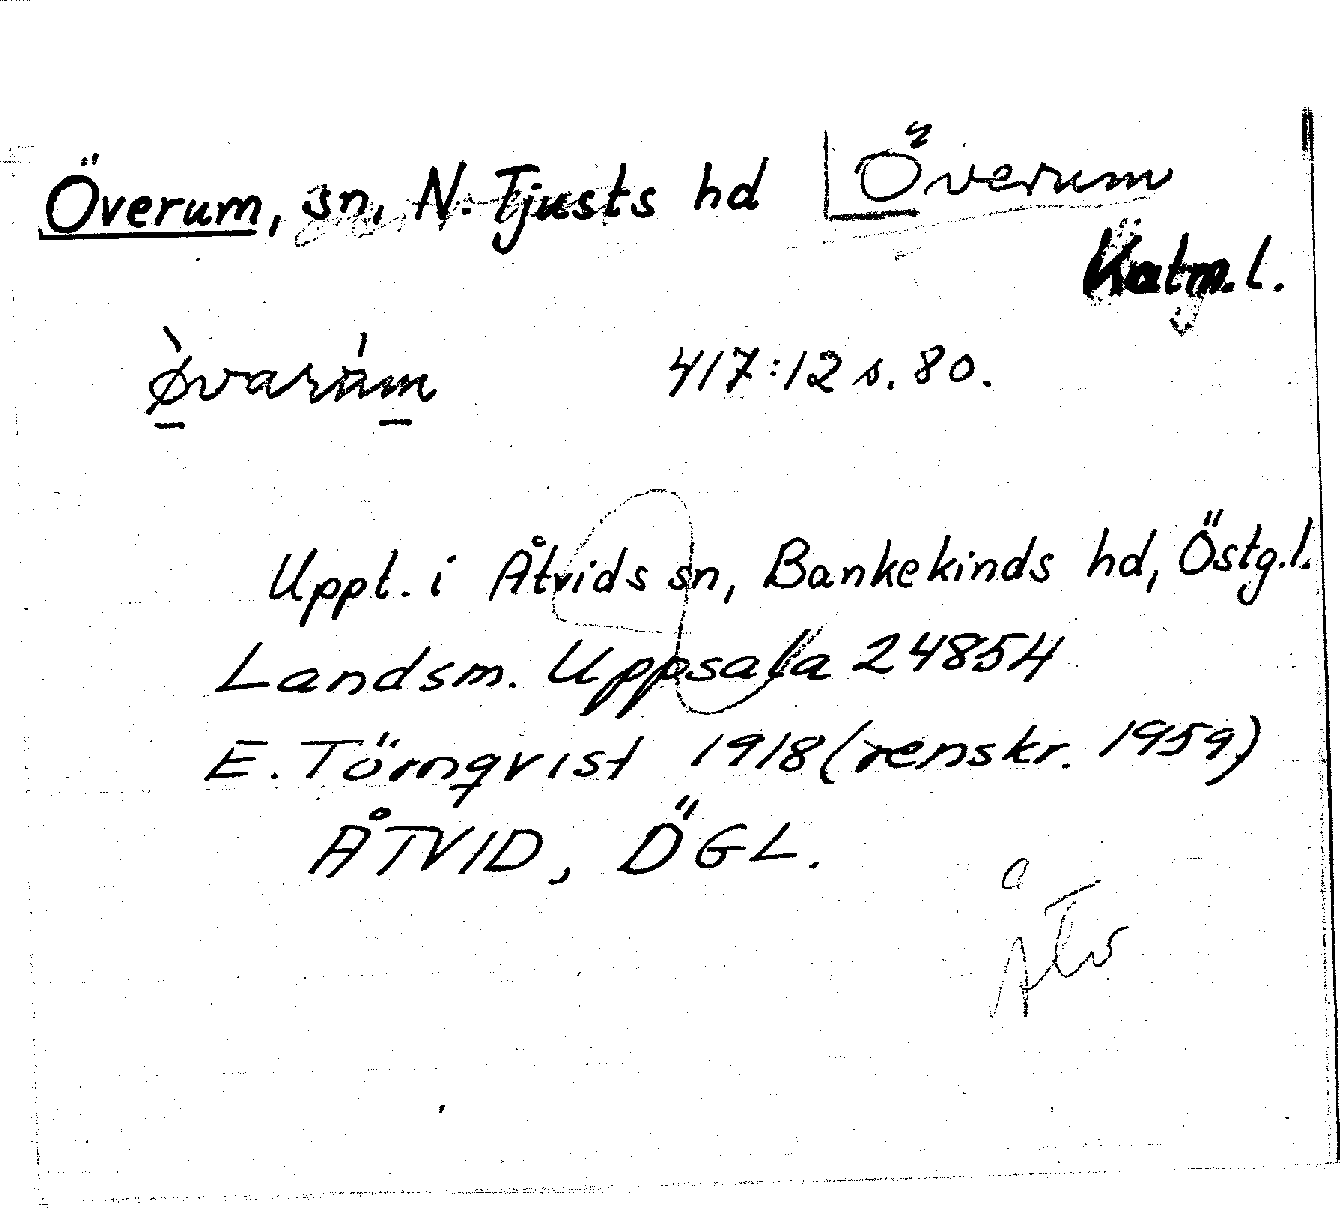 Överum, sn, N. Tjusts hd Överum
Kalm.l.
417:12 s. 80.
Uppt. i Åtvids sn, Bankekinds hd, Östg.l.
Landsm. Uppsala 24854
E. Törnqvist 1918 (renskr. 1959)
ÅTVID, ÖGL.
Åtv